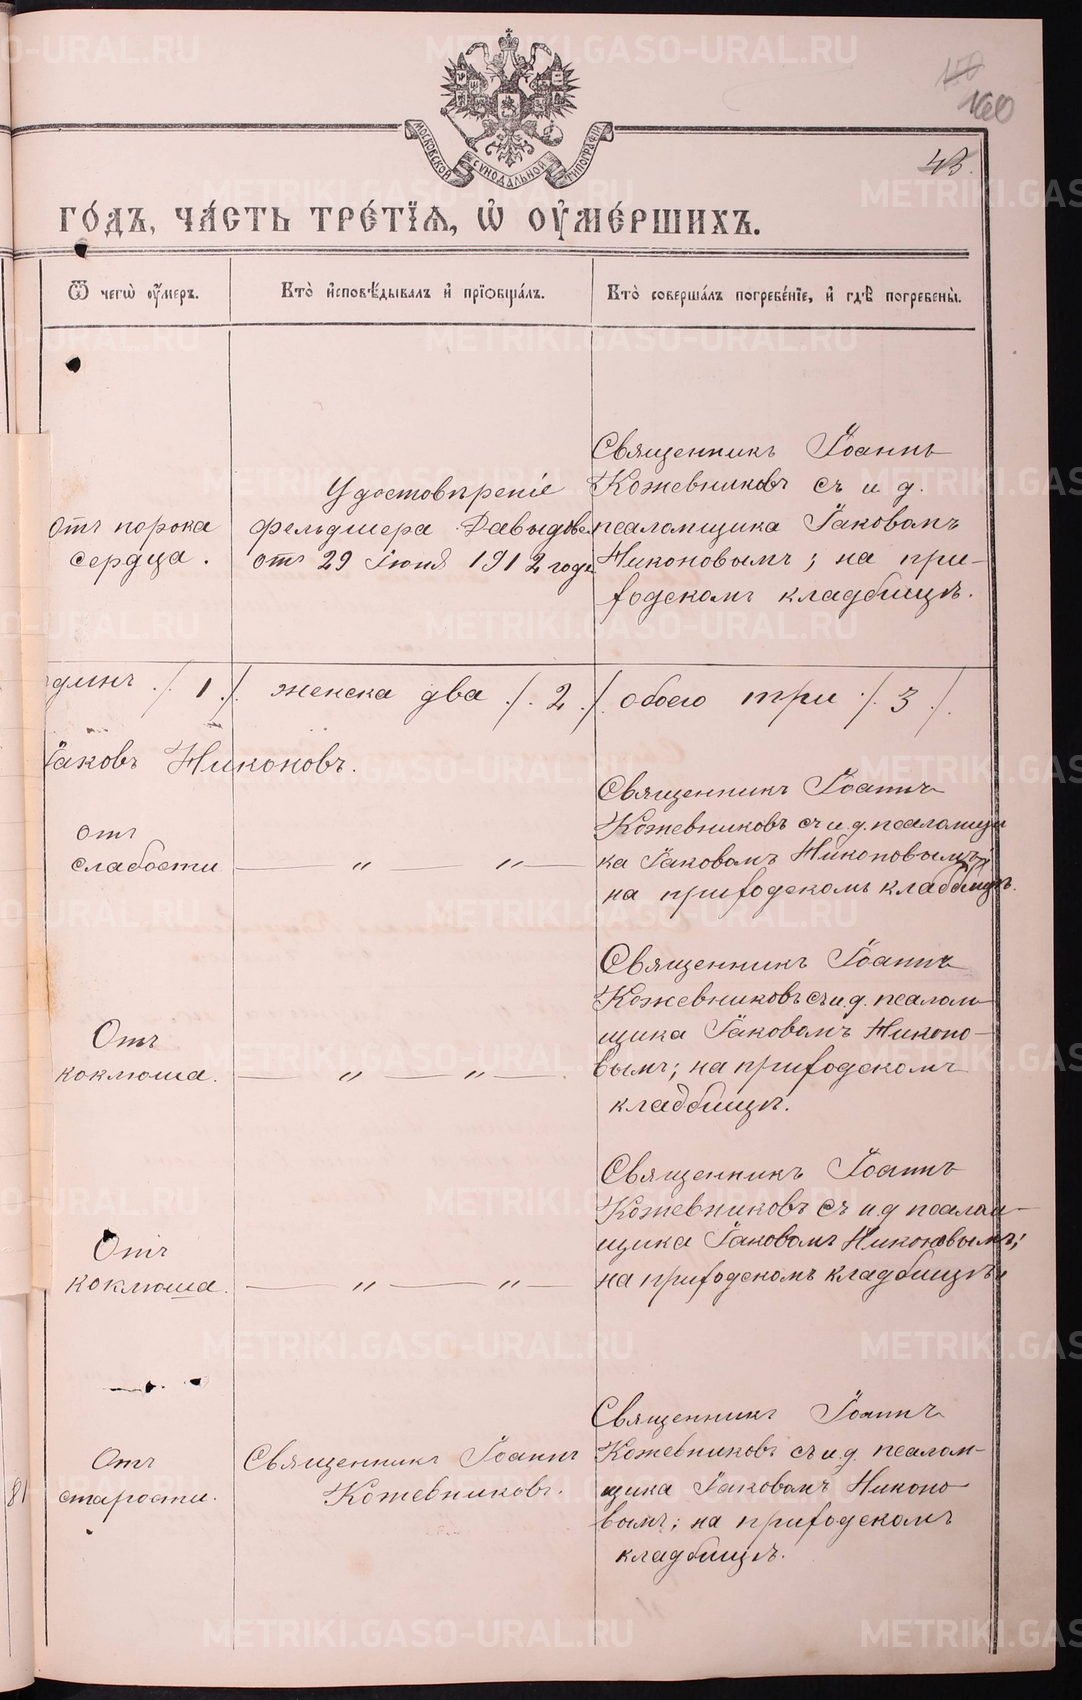 160
43.
МОСКОВСКОЙ СѴНОДАЛЬНОЙ ТИПОГРАФІИ
ГО́ДЪ, ЧА́СТЬ ТРЕ́ТЇѦ, Ѡ҆ ОУ҆МЕ́РШИХЪ.
Ѿ чегѡ̀ оу҆́меръ.
Кто̀ и҆сповѣ́дывалъ и҆ прїѻбща́лъ.
Кто̀ соверша́лъ погребе́нїе, и҆ гдѣ̀ погребены̀.
Отъ порока
сердца.
Удостовѣреніе
фельдшера Давыдова
отъ 29 Іюня 1912 года
Священникъ Іоаннъ
Кожевниковъ съ и. д.
псаломщика Іаковомъ
Никоновымъ; на при-
ходскомъ кладбищѣ.
одинъ ./. 1 ./. женска два ./. 2 ./. обоего три ./. 3 ./.
Іаковъ Никоновъ.
отъ
слабости
— „ „ —
Священникъ Іоаннъ
Кожевниковъ съ и. д. псаломщи
ка Іаковомъ Никоновымъ;
на приходскомъ кладбищѣ.
Отъ
коклюша.
— „ — „ —
Священникъ Іоаннъ
Кожевниковъ съ и. д. псалом-
щика Іаковомъ Никоно-
вымъ; на приходскомъ
кладбищѣ.
Отъ
коклюша.
— „ — „ —
Священникъ Іоаннъ
Кожевниковъ съ и. д. псалом-
щика Іаковомъ Никоновымъ;
на приходскомъ кладбищѣ.
81
Отъ
старости.
Священникъ Іоаннъ
Кожевниковъ.
Священникъ Іоаннъ
Кожевниковъ съ и. д. псалом-
щика Іаковомъ Никоно-
вымъ; на приходскомъ
кладбищѣ.
METRIKI.GASO-URAL.RU